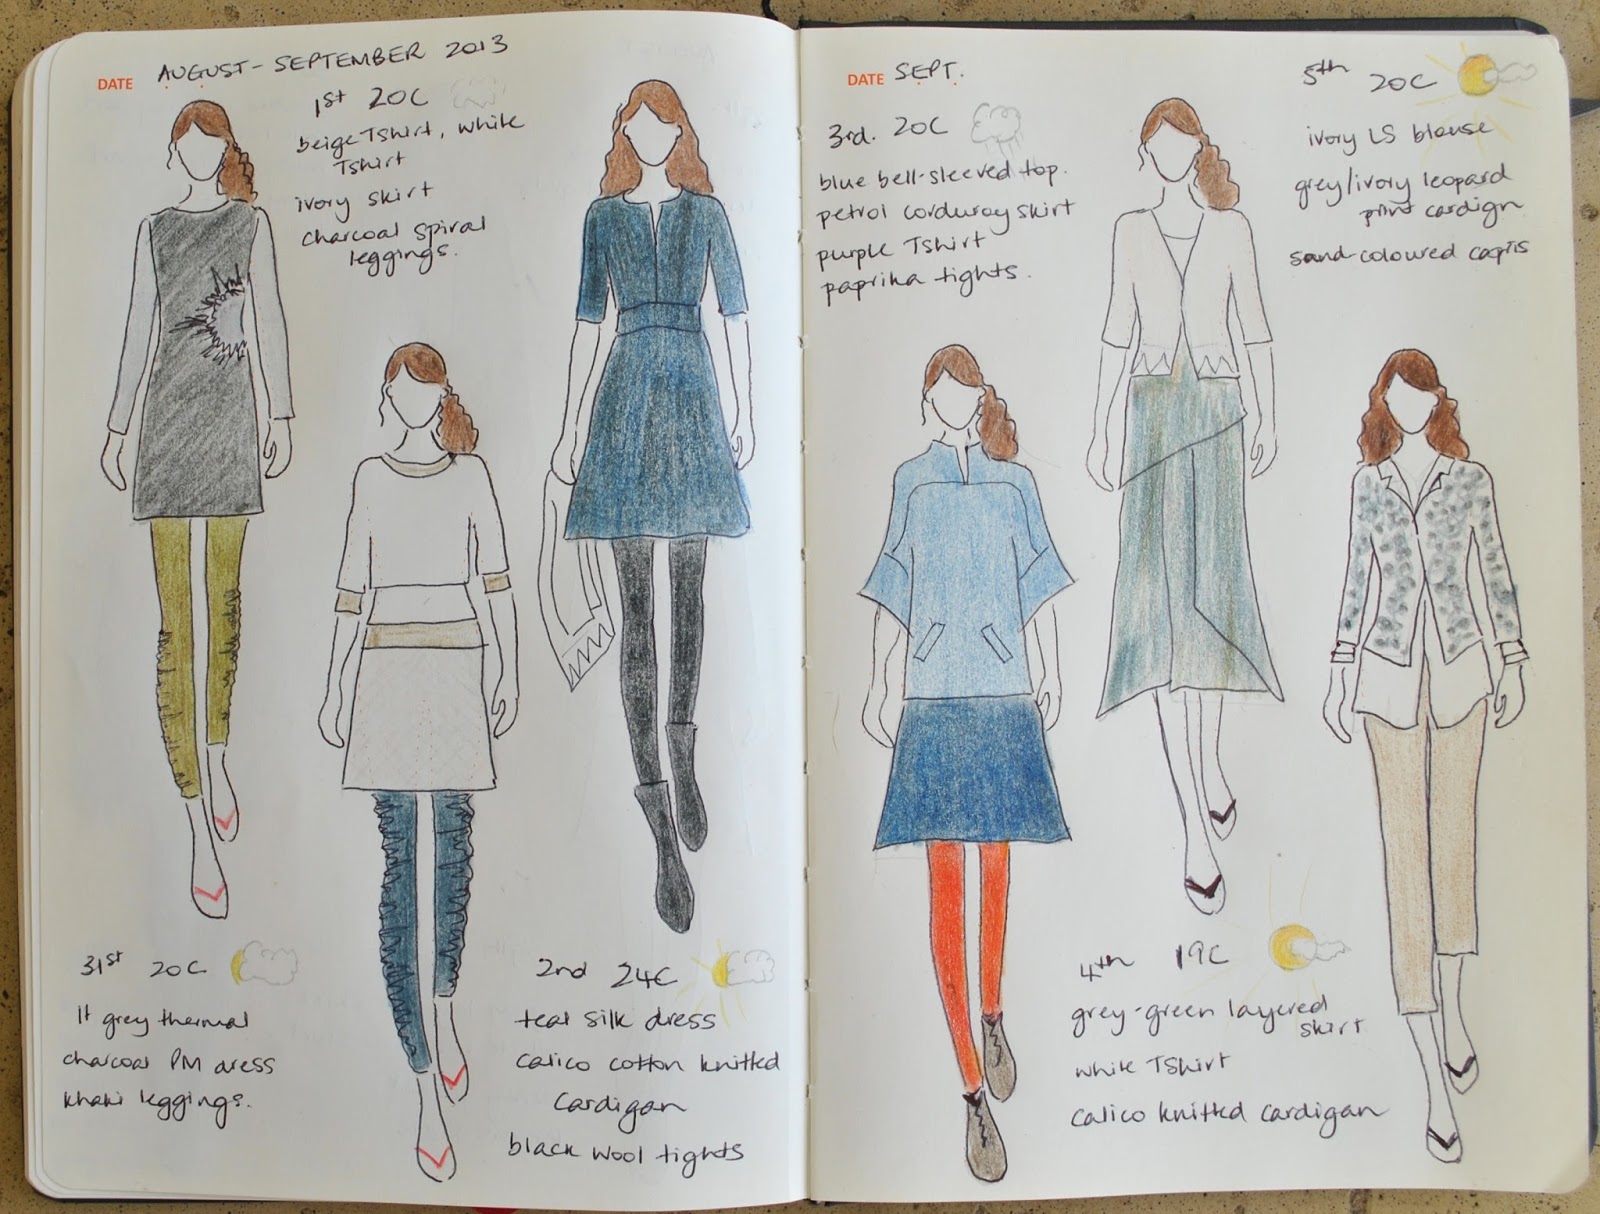 DATE AUGUST-SEPTEMBER 2013
1st 20C
beige Tshirt, white
Tshirt
ivory skirt
charcoal spiral
leggings.
31st 20C
lt grey thermal
charcoal PM dress
khaki leggings.
2nd 24C
teal silk dress
calico cotton knitted
cardigan
black wool tights
DATE SEPT.
3rd. 20C
blue bell-sleeved top.
petrol corduroy skirt
purple Tshirt
paprika tights.
5th 20C
ivory LS blouse
grey/ivory leopard
print cardign
sand-coloured capris
4th 19C
grey-green layered
skirt
white TShirt
calico knitted cardigan